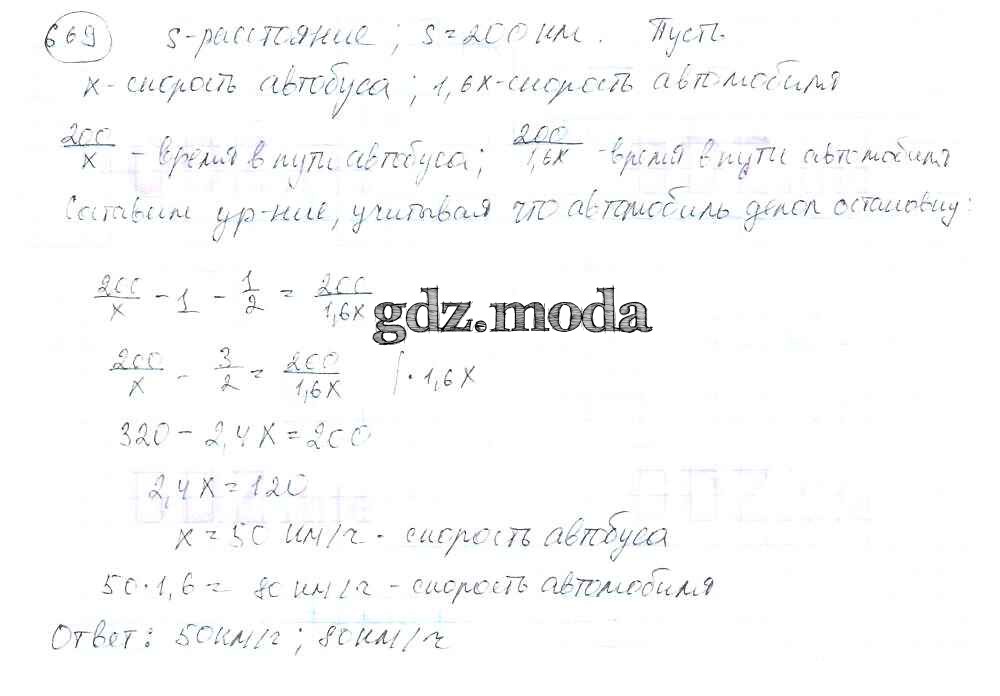 669 S-расстояние; S=200 км. Пусть
x-скорость автобуса; 1,6x-скорость автомобиля
200/x - время в пути автобуса; 200/1,6x -время в пути автомобиля
Составим ур-ние, учитывая что автомобиль делал остановку:
200/x - 1 - 1/2 = 200/1,6x
gdz.moda
200/x - 3/2 = 200/1,6x | · 1,6x
320 - 2,4x = 200
2,4x = 120
x = 50 км/ч - скорость автобуса
50·1,6 = 80 км/ч - скорость автомобиля
Ответ: 50км/ч; 80км/ч